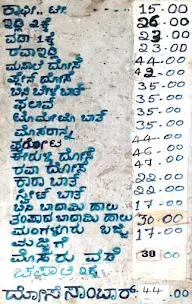 ಕಾಫಿ.. ಟೀ. 15-00
ಇಡ್ಲಿ 2 ಕ್ಕೆ 26-00
ವಡಾ 1 ಕ್ಕೆ 23-00
ರವಾ ಇಡ್ಲಿ 23-00
ಮಸಾಲೆ ದೋಸೆ 44-00
ಪ್ಲೇನ್ ದೋಸೆ 42-00
ಬಿಸಿ ಬೇಳೆ ಬಾತ್ 35-00
ಪಲಾವ್ 35-00
ಟೊಮೇಟೊ ಬಾತ್ 35-00
ಮೊಸರನ್ನ 35-00
ಪರೋಟ 44-00
ಈರುಳ್ಳಿ ದೋಸೆ 46-00
ರವಾ ದೋಸೆ 47-00
ಖಾರಾ ಬಾತ್ 22-00
ಸ್ವೀಟ್ ಬಾತ್ 22-00
ಬಿಸಿ ಬಾದಾಮಿ ಹಾಲು 17-00
ತಂಪಾದ ಬಾದಾಮಿ ಹಾಲು 30-00
ಮಂಗಳೂರು ಬಜ್ಜಿ 17-00
ಮಜ್ಜಿಗೆ
ಮೊಸರು ವಡೆ 30 00
ಚಪಾತಿ 2ಕ್ಕೆ
ದೋಸೆ ಸಾಂಬಾರ್ 44-00